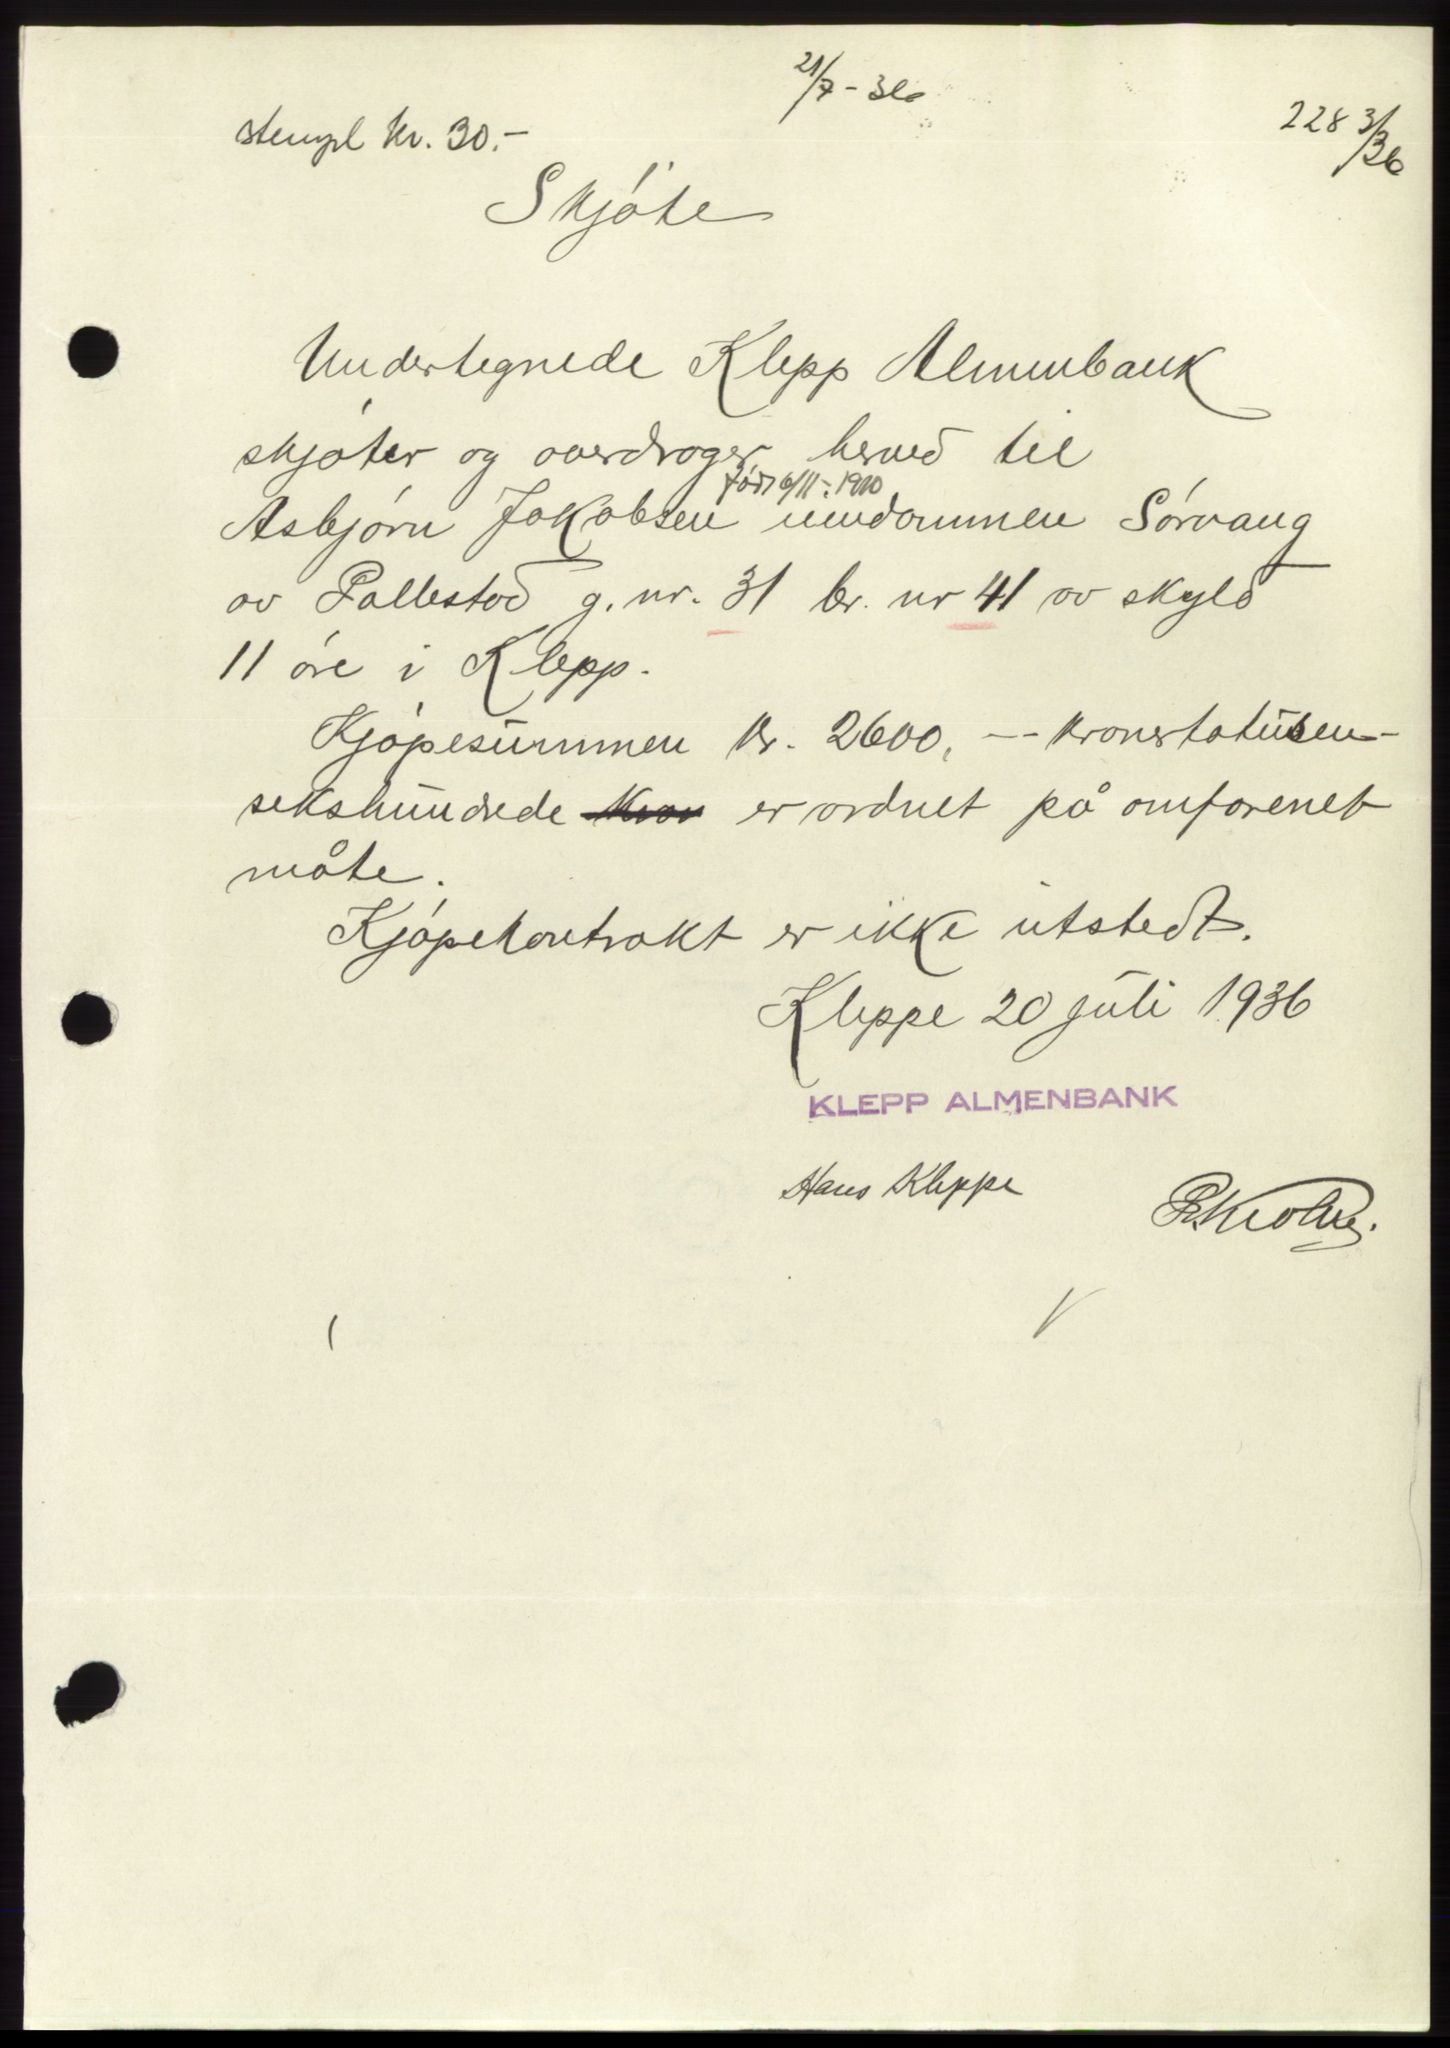 21/7-36
2283/36
stempl kr. 30.-
Skjöte
Undertegnede Klepp Almenbank
skjöter og overdrager herved til
född 6/11-1910
Asbjörn Jakobsen eiendommen Sörvang
av Pollestad g. nr. 31 br. nr 41 av skyld
11 öre i Klepp.
Kjöpesummen kr. 2600, -- kronertotusen-
sekshundrede er ordnet på omforenet
måte.
Kjöpekontrakt er ikke utstedt.
Kleppe 20 juli 1936
KLEPP ALMENBANK
Hans Kleppe